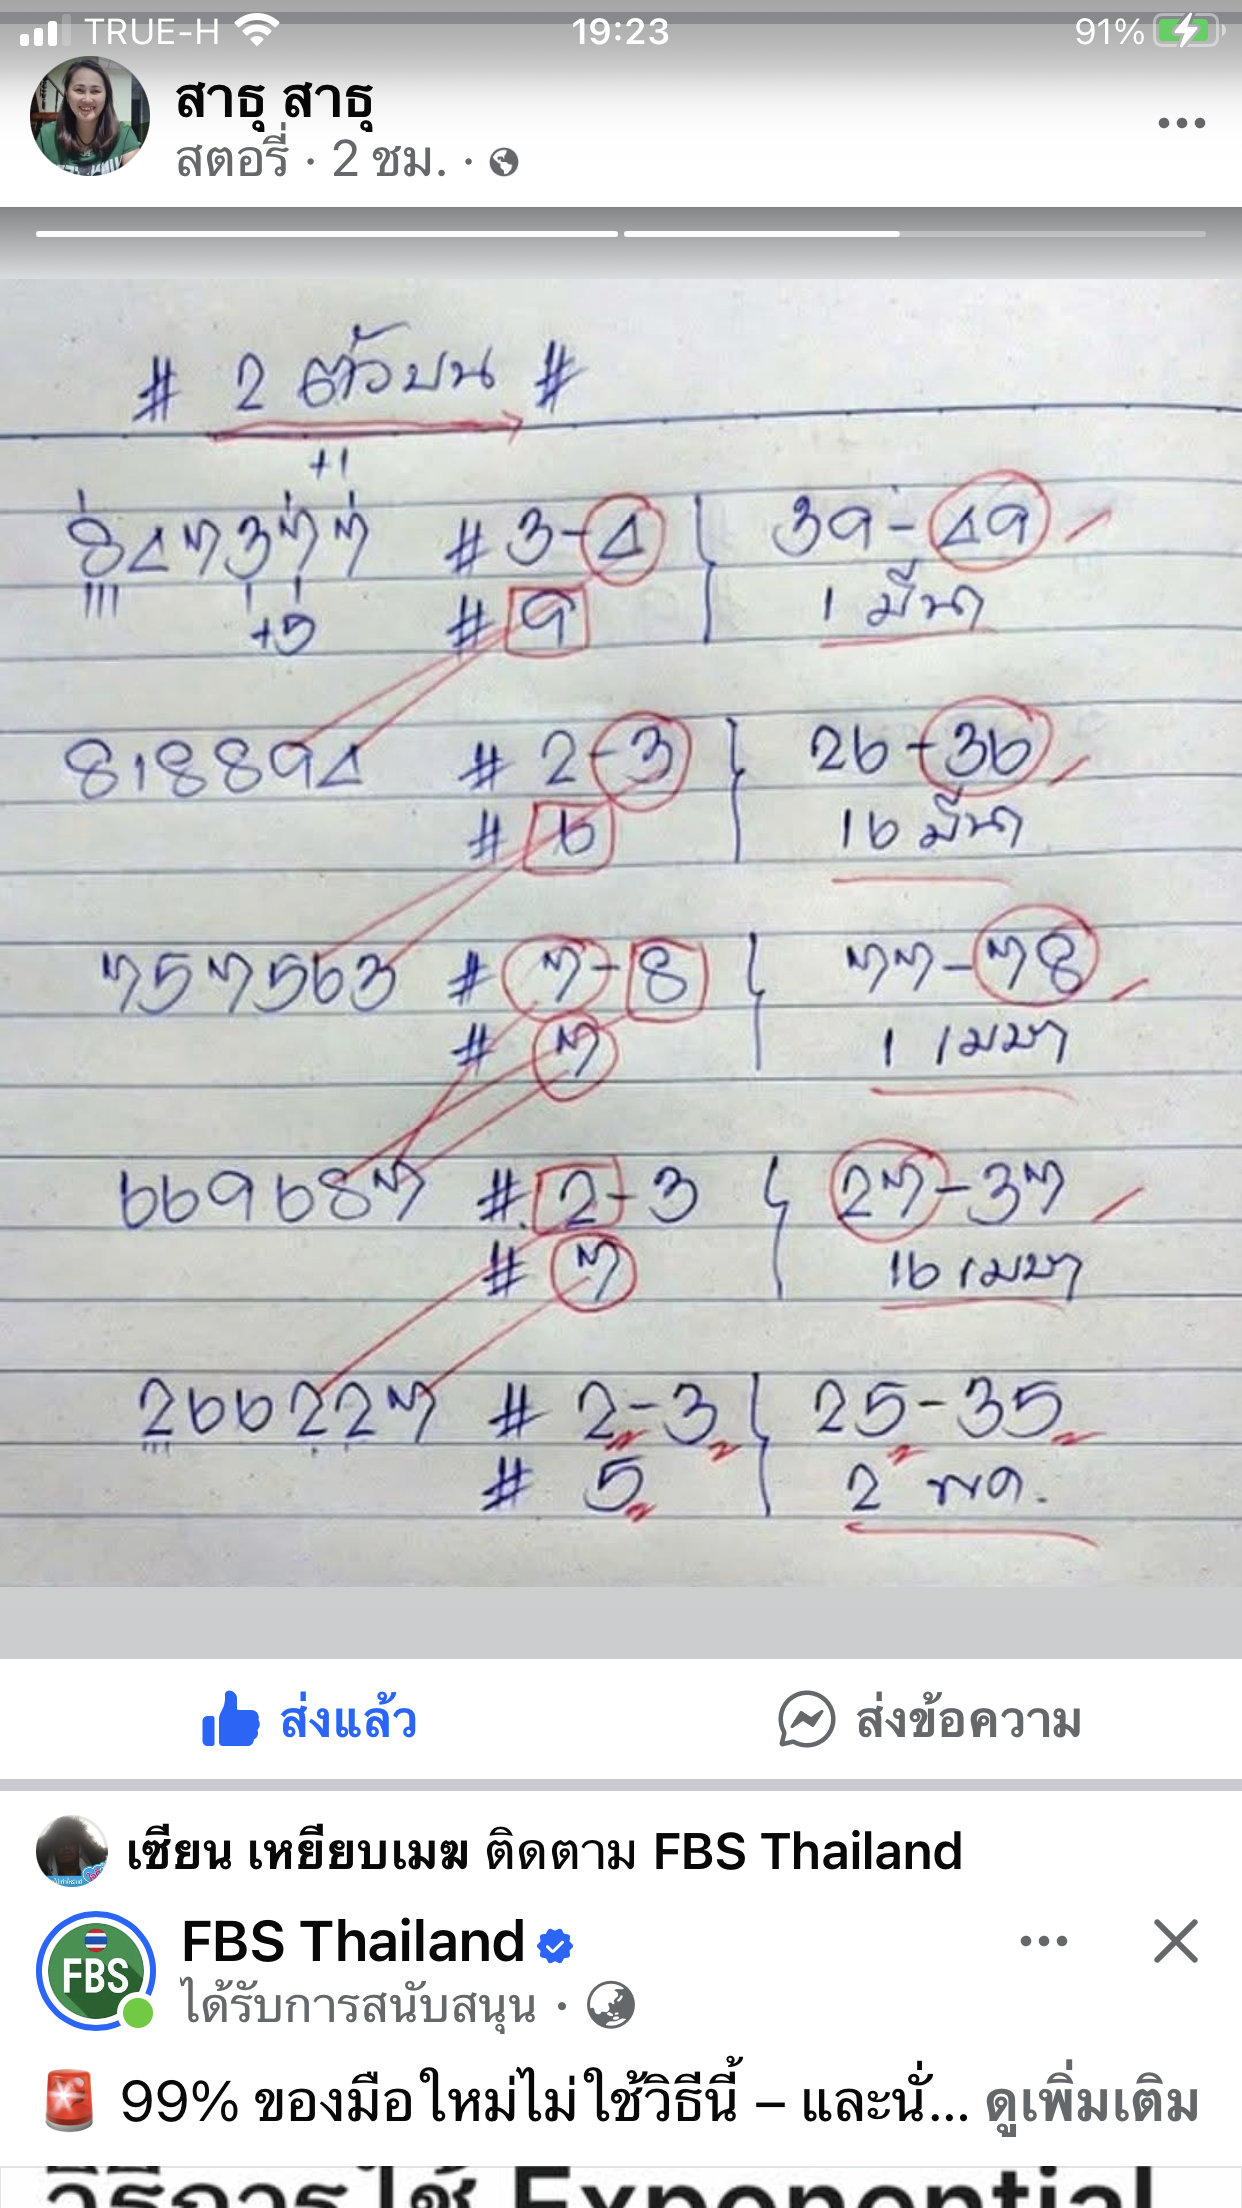 TRUE-H 19:23 91%
สาธุ สาธุ
สตอรี่ · 2 ชม. ·
# 2 ตัวบน #
+1
847377 # 3-4 39-49
+5 # 9 1 มีนา
818894 # 2-3 26-36
# 6 16 มีนา
757563 # 7-8 77-78
# 7 1 เมษา
669687 # 2-3 27-37
# 7 16 เมษา
266227 # 2-3 25-35
# 5 2 พค.
ส่งแล้ว ส่งข้อความ
เซียน เหยียบเมฆ ติดตาม FBS Thailand
FBS
FBS Thailand
ได้รับการสนับสนุน ·
99% ของมือใหม่ไม่ใช้วิธีนี้ – และนั่... ดูเพิ่มเติม
วิธีการใช้ Exponential